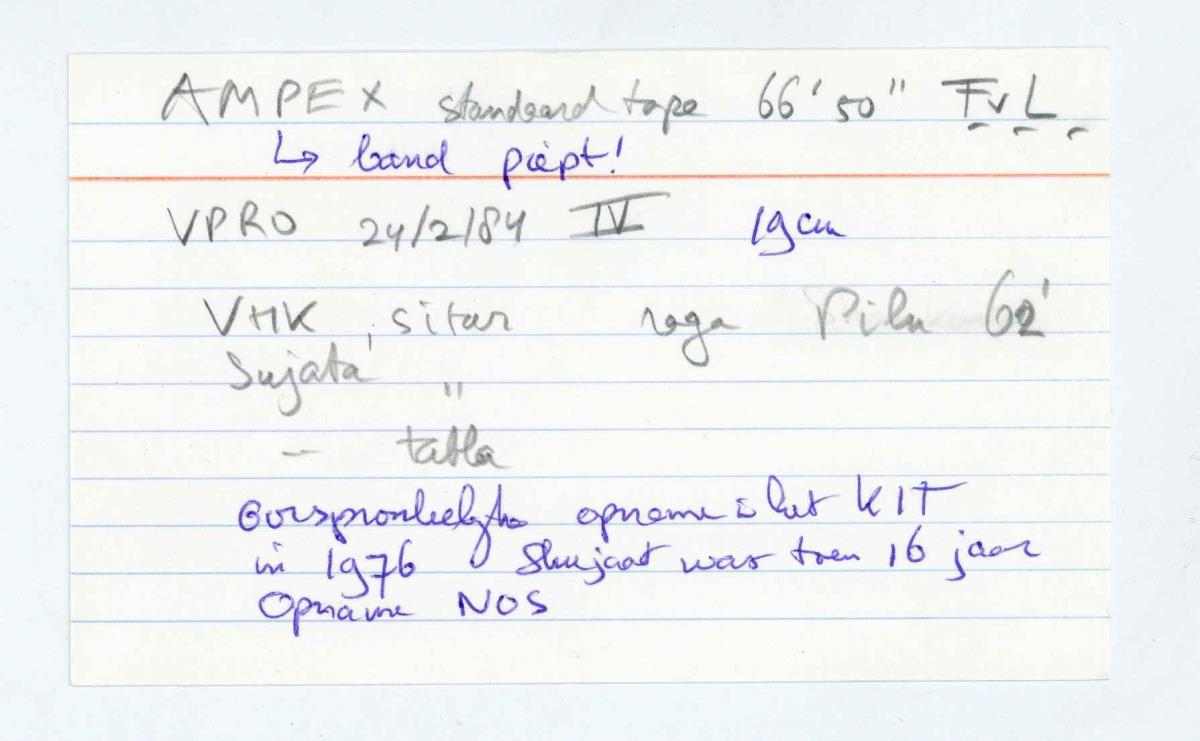 AMPEX standaard tape 66'50" FvL
↳ band piept!
VPRO 24/2/84 IV 19cm
VHK sitar raga Pilu 62'
Sujata "
– tabla
Oorspronkelijke opname i het KIT
in 1976 Shujaat was toen 16 jaar
Opname NOS